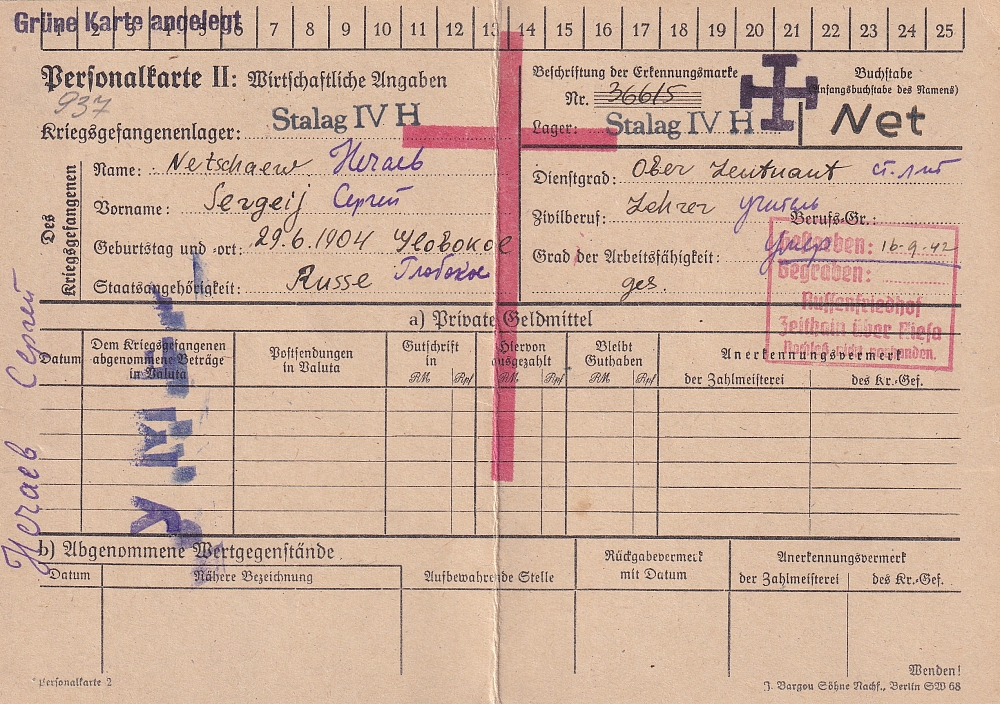 Grüne Karte angelegt
1 2 3 4 5 6 7 8 9 10 11 12 13 14 15 16 17 18 19 20 21 22 23 24 25
Personalkarte II: Wirtschaftliche Angaben
937
Kriegsgefangenenlager: Stalag IV H
Beschriftung der Erkennungsmarke
Nr. 36615
Lager: Stalag IV H
Buchstabe
(Anfangsbuchstabe des Namens)
Net
Des Kriegsgefangenen
Name: Netschaew Нечаев
Vorname: Sergeij Сергей
Geburtstag und -ort: 29.6.1904 Glovokoe
Глобокое
Staatsangehörigkeit: Russe
Dienstgrad: Ober Leutnant ст. лит
Zivilberuf: Lehrer учитель Berufs-Gr.:
Grad der Arbeitsfähigkeit: умер
ges.
Gestorben: 16.9.42
Begraben:
Russenfriedhof
Zeithain über Riesa
Nachlaß nicht vorhanden.
Нечаев Сергей
a) Private Geldmittel
Datum
Dem Kriegsgefangenen abgenommene Beträge in Valuta
Postsendungen in Valuta
Gutschrift in
RM Rpf
Hiervon ausgezahlt
RM Rpf
Bleibt Guthaben
RM Rpf
Anerkennungsvermerk
der Zahlmeisterei des Kr.-Gef.
b) Abgenommene Wertgegenstände
Datum
Nähere Bezeichnung
Aufbewahrende Stelle
Rückgabevermerk mit Datum
Anerkennungsvermerk
der Zahlmeisterei des Kr.-Gef.
Wenden!
Personalkarte 2
J. Bargou Söhne Nachf., Berlin SW 68